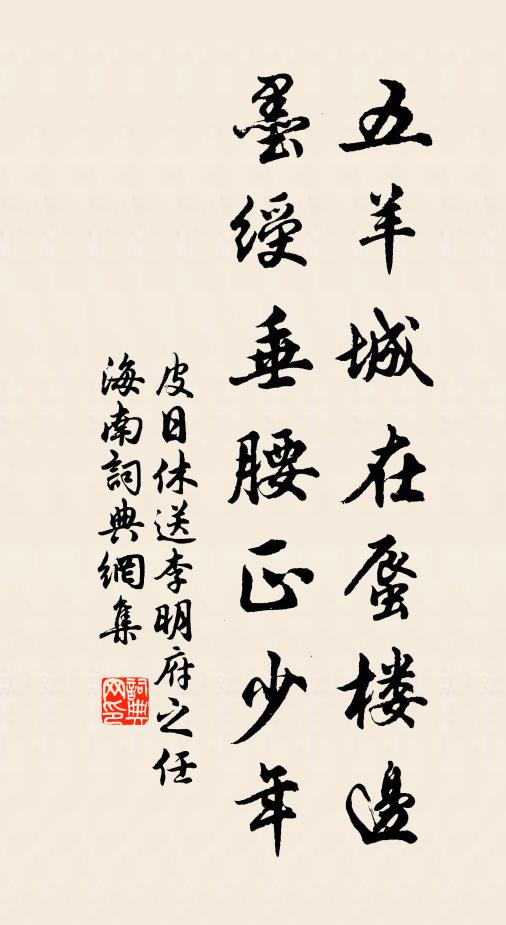 五羊城在蜃楼邊
墨綬垂腰正少年
皮日休送李明府之任
海南詞典網集
詞典
网印